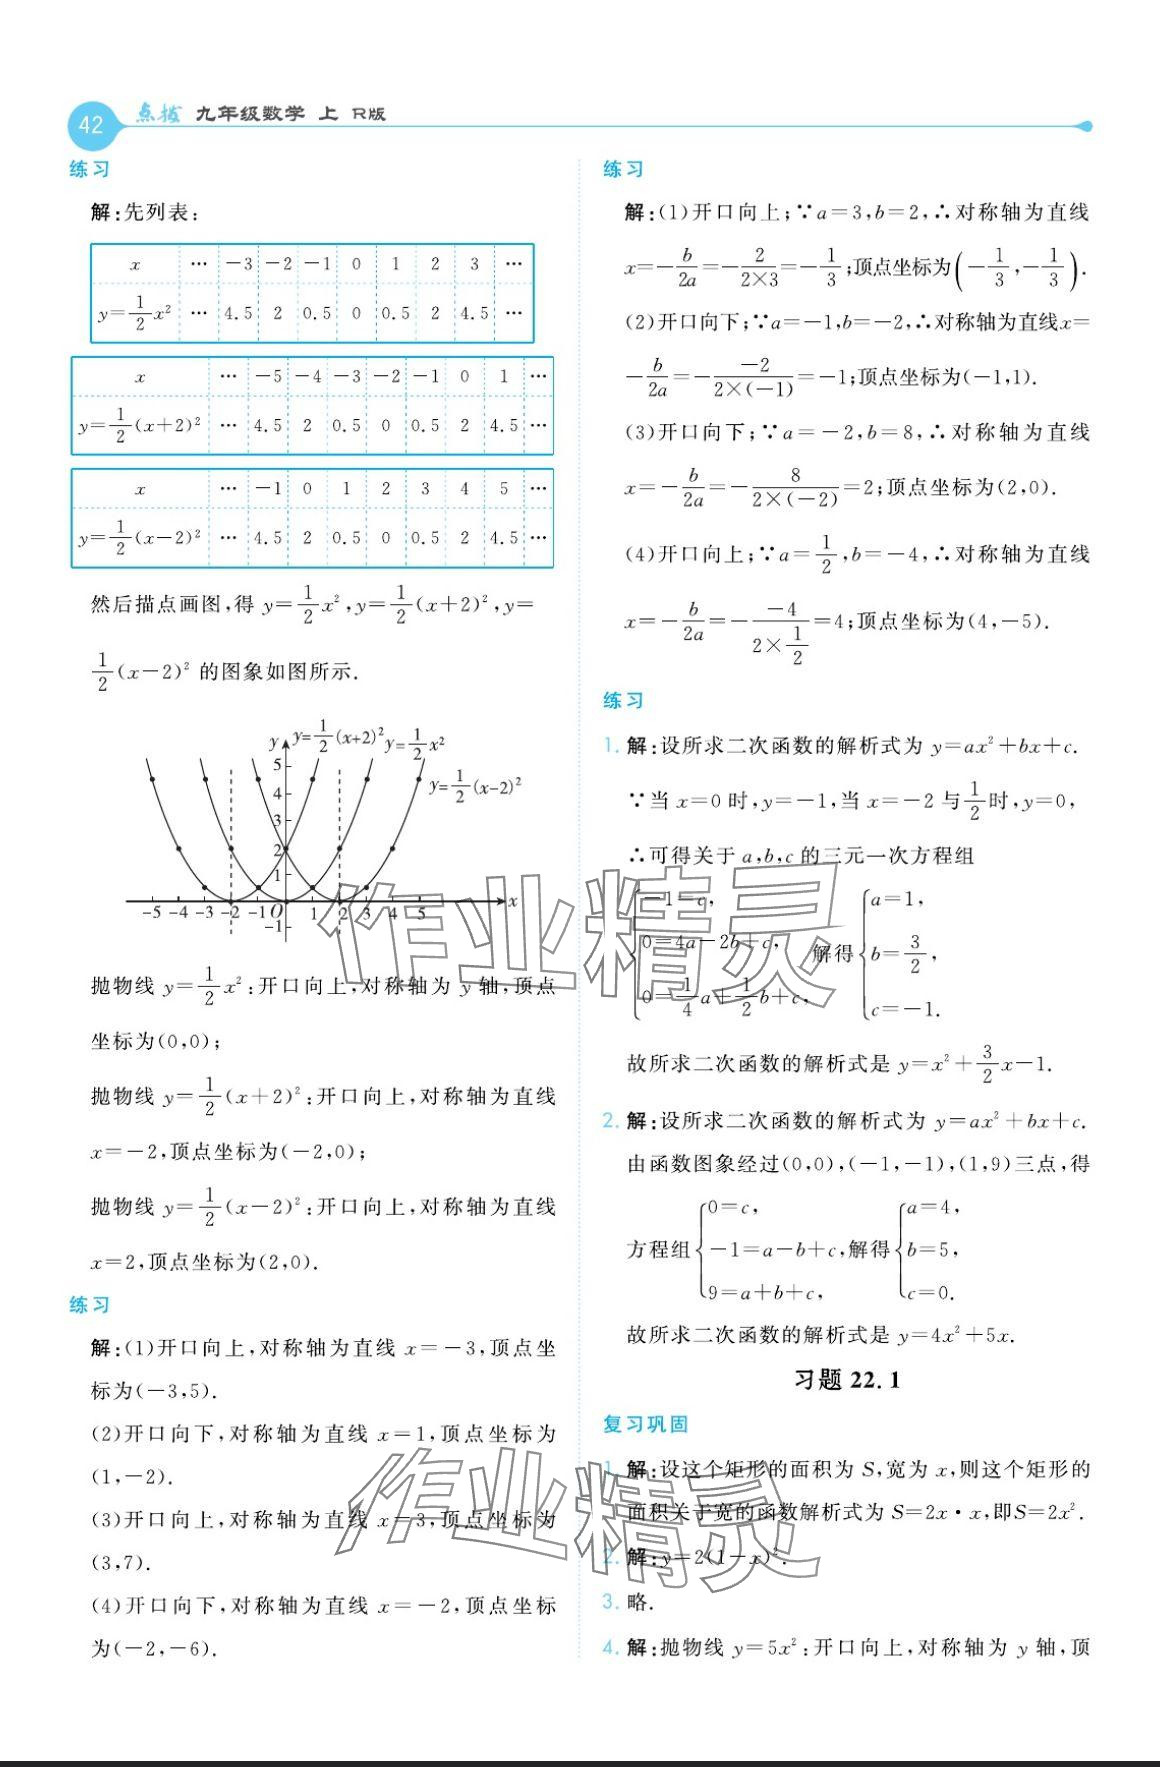 42 点拨 九年级数学 上 R版
练习
解:先列表:
x … －3 －2 －1 0 1 2 3 …
y=1/2x² … 4.5 2 0.5 0 0.5 2 4.5 …
x … －5 －4 －3 －2 －1 0 1 …
y=1/2(x+2)² … 4.5 2 0.5 0 0.5 2 4.5 …
x … －1 0 1 2 3 4 5 …
y=1/2(x－2)² … 4.5 2 0.5 0 0.5 2 4.5 …
然后描点画图,得 y=1/2x²,y=1/2(x+2)²,y=
1/2(x－2)² 的图象如图所示.
y y=1/2(x+2)² y=1/2x²
y=1/2(x-2)²
5
4
3
2
1
-5 -4 -3 -2 -1 O 1 2 3 4 5 x
-1
抛物线 y=1/2x²:开口向上,对称轴为 y 轴,顶点
坐标为(0,0);
抛物线 y=1/2(x+2)²:开口向上,对称轴为直线
x=－2,顶点坐标为(－2,0);
抛物线 y=1/2(x－2)²:开口向上,对称轴为直线
x=2,顶点坐标为(2,0).
练习
解:(1)开口向上,对称轴为直线 x=－3,顶点坐
标为(－3,5).
(2)开口向下,对称轴为直线 x=1,顶点坐标为
(1,－2).
(3)开口向上,对称轴为直线 x=3,顶点坐标为
(3,7).
(4)开口向下,对称轴为直线 x=－2,顶点坐标
为(－2,－6).
练习
解:(1)开口向上;∵a=3,b=2,∴对称轴为直线
x=－b/2a=－2/(2×3)=－1/3;顶点坐标为(－1/3,－1/3).
(2)开口向下;∵a=－1,b=－2,∴对称轴为直线x=
－b/2a=－(－2)/(2×(－1))=－1;顶点坐标为(－1,1).
(3)开口向下;∵a=－2,b=8,∴对称轴为直线
x=－b/2a=－8/(2×(－2))=2;顶点坐标为(2,0).
(4)开口向上;∵a=1/2,b=－4,∴对称轴为直线
x=－b/2a=－(－4)/(2×1/2)=4;顶点坐标为(4,－5).
练习
1. 解:设所求二次函数的解析式为 y=ax²+bx+c.
∵当 x=0 时,y=－1,当 x=－2 与1/2时,y=0,
∴可得关于 a,b,c 的三元一次方程组
{－1=c, 0=4a－2b+c, 0=1/4a+1/2b+c, 解得{a=1, b=3/2, c=－1.
故所求二次函数的解析式是 y=x²+3/2x－1.
2. 解:设所求二次函数的解析式为 y=ax²+bx+c.
由函数图象经过(0,0),(－1,－1),(1,9)三点,得
方程组{0=c, －1=a－b+c, 9=a+b+c, 解得{a=4, b=5, c=0.
故所求二次函数的解析式是 y=4x²+5x.
习题 22.1
复习巩固
1. 解:设这个矩形的面积为 S,宽为 x,则这个矩形的
面积关于宽的函数解析式为 S=2x·x,即S=2x².
2. 解:y=2(1－x)².
3. 略.
4. 解:抛物线 y=5x²:开口向上,对称轴为 y 轴,顶
作业精灵
作业精灵